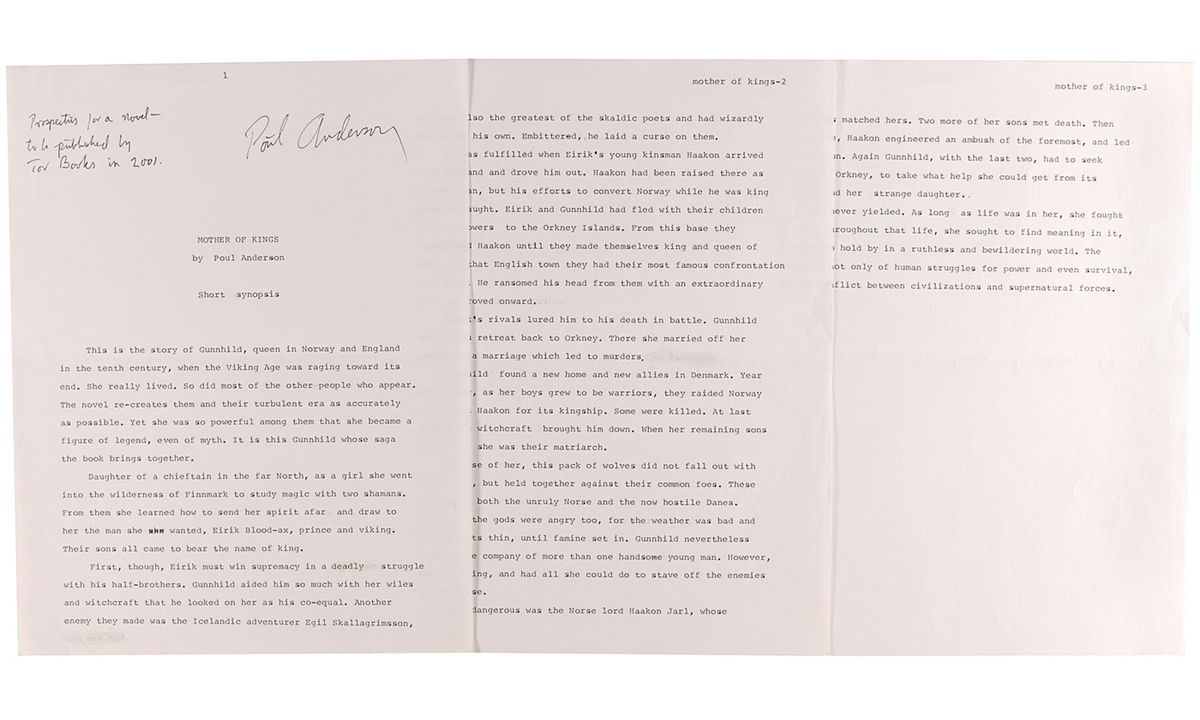 1
Prospectus for a novel—
to be published by
Tor Books in 2001.
Poul Anderson
MOTHER OF KINGS
by Poul Anderson
Short synopsis
This is the story of Gunnhild, queen in Norway and England
in the tenth century, when the Viking Age was raging toward its
end. She really lived. So did most of the other people who appear.
The novel re-creates them and their turbulent era as accurately
as possible. Yet she was so powerful among them that she became a
figure of legend, even of myth. It is this Gunnhild whose saga
the book brings together.
Daughter of a chieftain in the far North, as a girl she went
into the wilderness of Finnmark to study magic with two shamans.
From them she learned how to send her spirit afar and draw to
her the man she wanted, Eirik Blood-ax, prince and viking.
Their sons all came to bear the name of king.
First, though, Eirik must win supremacy in a deadly struggle
with his half-brothers. Gunnhild aided him so much with her wiles
and witchcraft that he looked on her as his co-equal. Another
enemy they made was the Icelandic adventurer Egil Skallagrimsson,
mother of kings-2
lso the greatest of the skaldic poets and had wizardly
his own. Embittered, he laid a curse on them.
as fulfilled when Eirik's young kinsman Haakon arrived
and and drove him out. Haakon had been raised there as
n, but his efforts to convert Norway while he was king
aught. Eirik and Gunnhild had fled with their children
owers to the Orkney Islands. From this base they
Haakon until they made themselves king and queen of
that English town they had their most famous confrontation
. He ransomed his head from them with an extraordinary
oved onward.
's rivals lured him to his death in battle. Gunnhild
retreat back to Orkney. There she married off her
a marriage which led to murders.
ild found a new home and new allies in Denmark. Year
, as her boys grew to be warriors, they raided Norway
Haakon for its kingship. Some were killed. At last
witchcraft brought him down. When her remaining sons
she was their matriarch.
se of her, this pack of wolves did not fall out with
, but held together against their common foes. These
both the unruly Norse and the now hostile Danes.
the gods were angry too, for the weather was bad and
ts thin, until famine set in. Gunnhild nevertheless
e company of more than one handsome young man. However,
ing, and had all she could do to stave off the enemies
se.
dangerous was the Norse lord Haakon Jarl, whose
mother of kings-3
matched hers. Two more of her sons met death. Then
, Haakon engineered an ambush of the foremost, and led
n. Again Gunnhild, with the last two, had to seek
Orkney, to take what help she could get from its
d her strange daughter.
never yielded. As long as life was in her, she fought
roughout that life, she sought to find meaning in it,
hold by in a ruthless and bewildering world. The
ot only of human struggles for power and even survival,
flict between civilizations and supernatural forces.